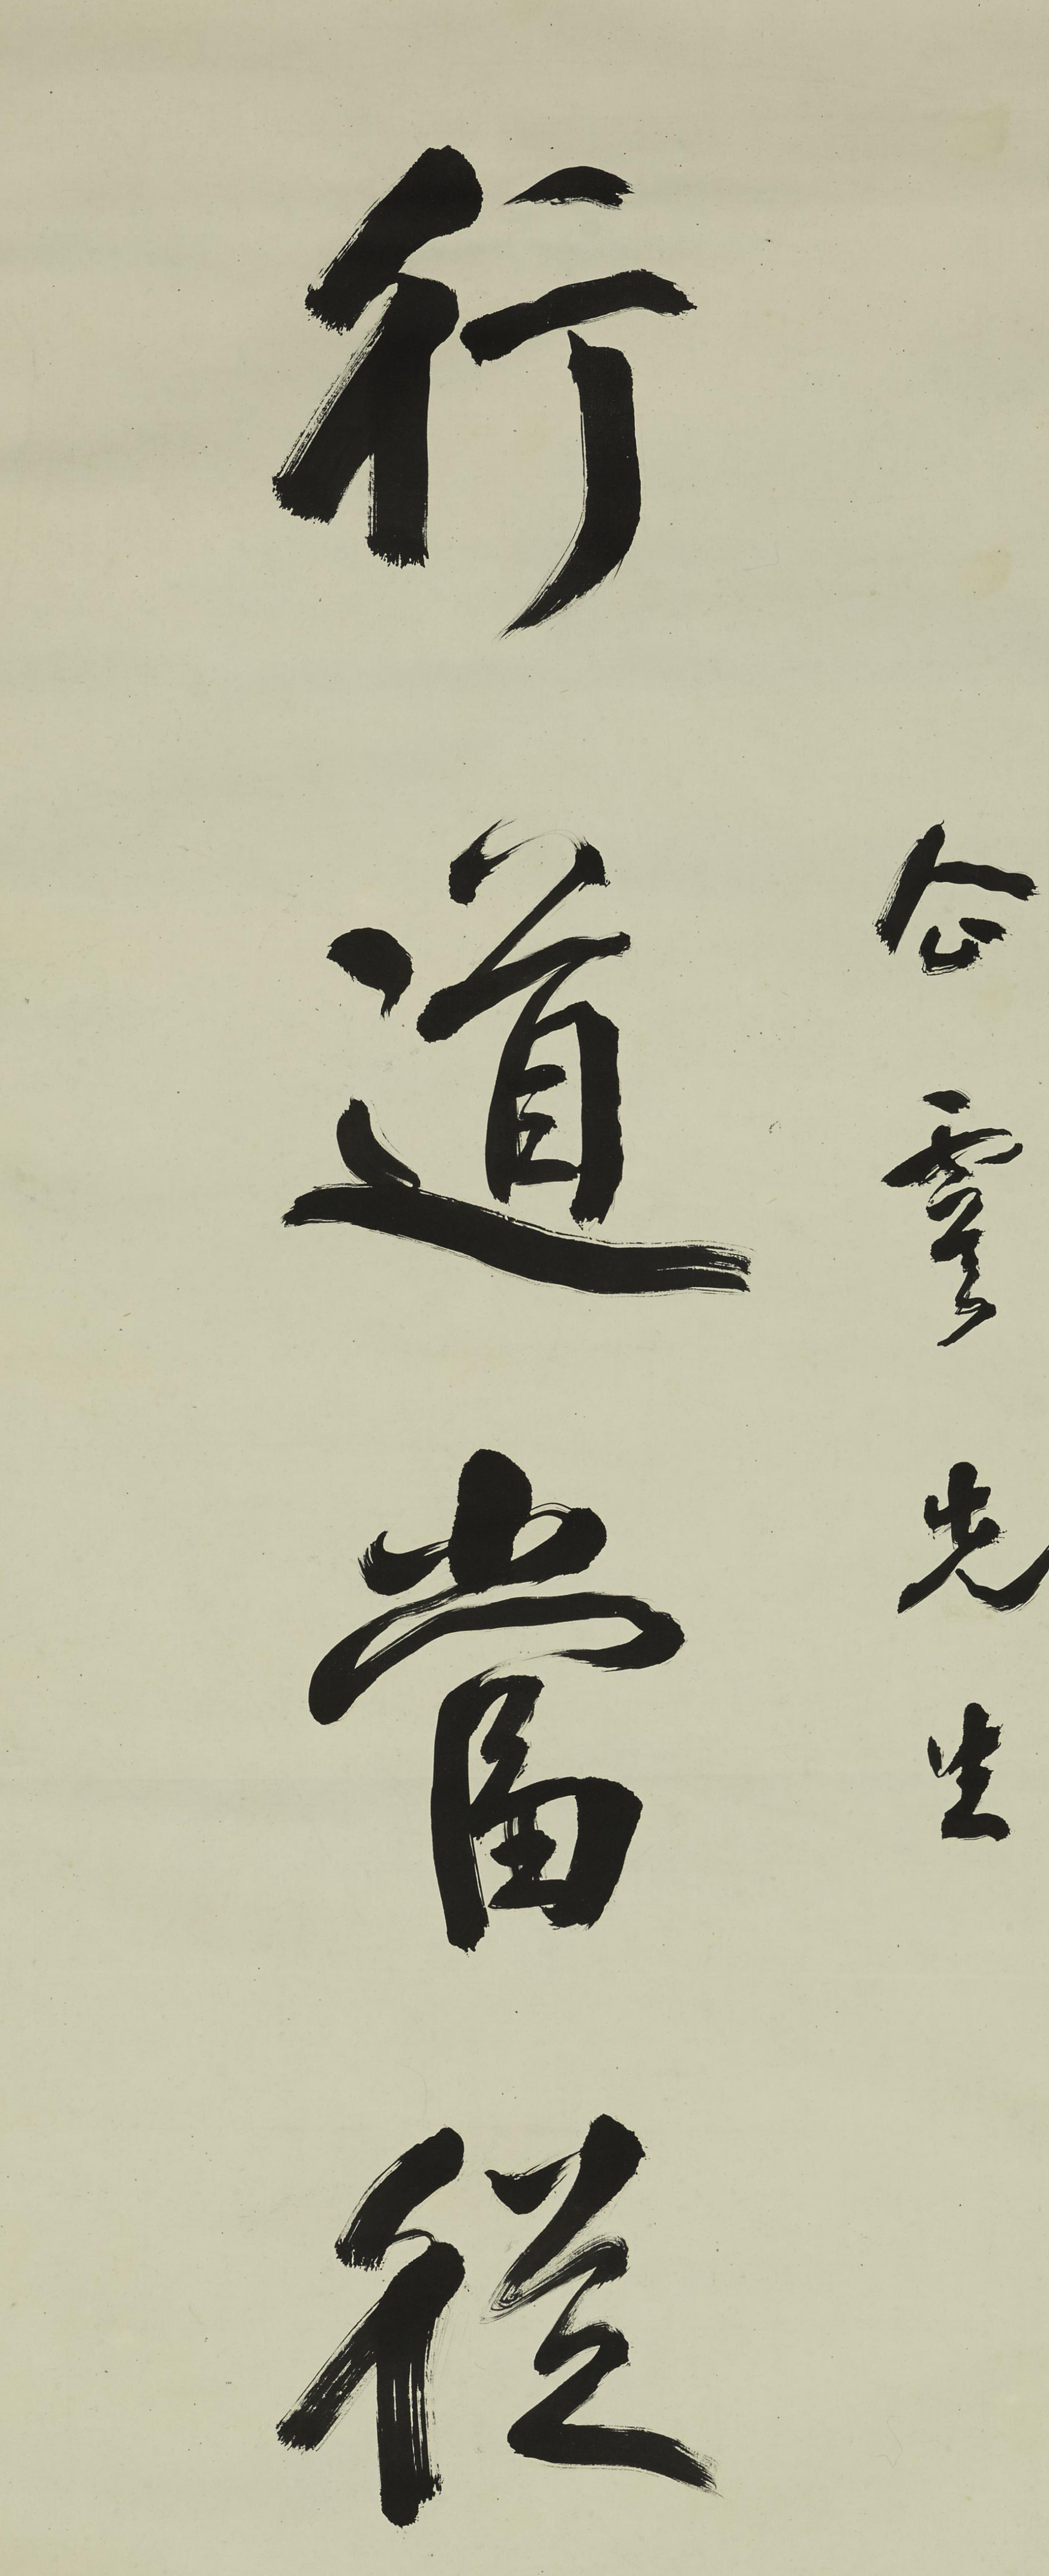 企雲先生
行道當從